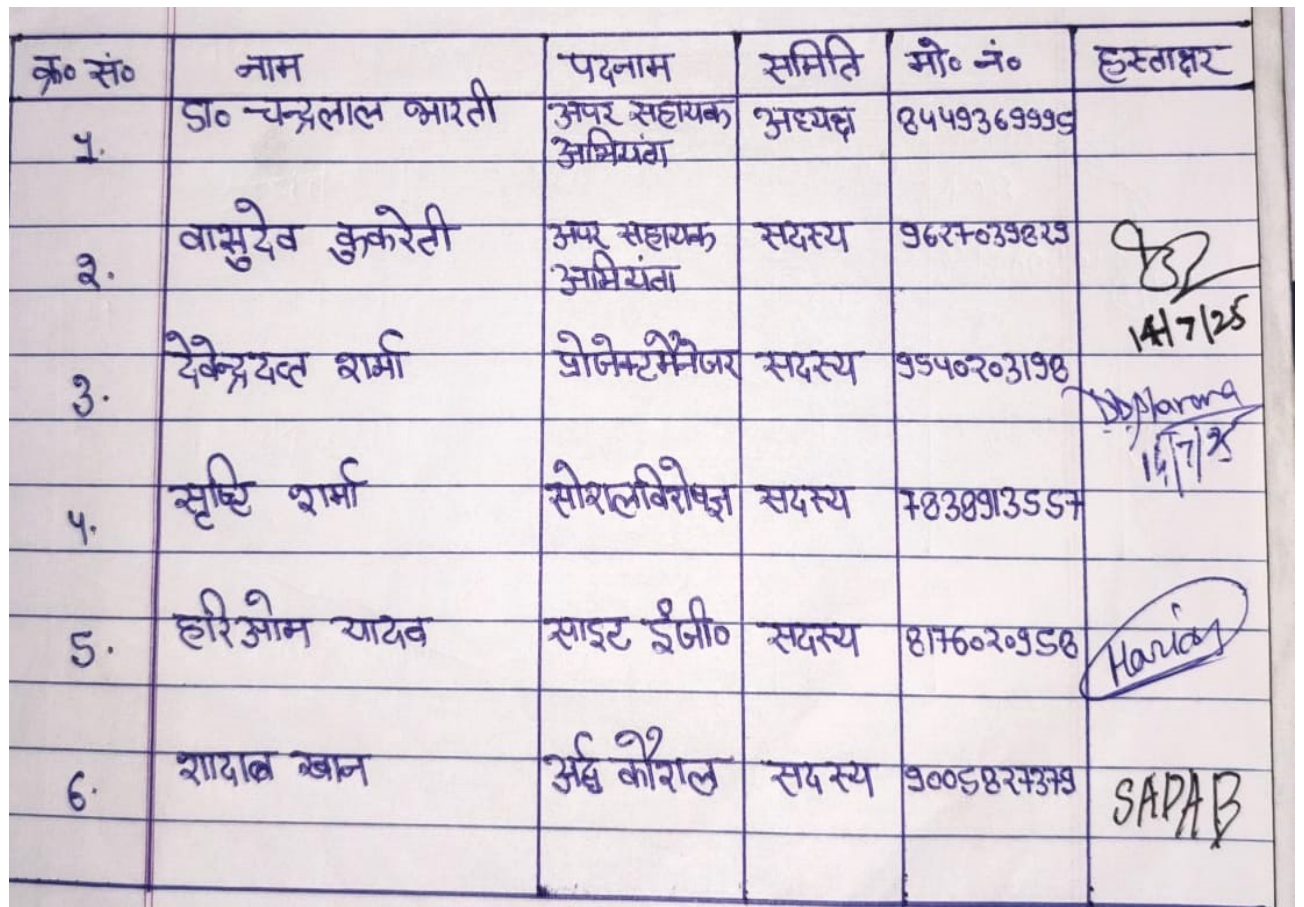 क्र० सं० नाम पदनाम समिति मो० नं० हस्ताक्षर
1. डा० चन्द्रलाल भारती अपर सहायक अध्यक्ष 8449369995
अभियंता
2. वासुदेव कुकरेती अपर सहायक सदस्य 9627039829
अभियंता
14/7/25
3. देवेन्द्रदत्त शर्मा प्रोजेक्टमैनेजर सदस्य 9540203198
DDSharma
14/7/25
४. सृष्टि शर्मा सोशलविशेषज्ञ सदस्य 7838913557
5. हरिओम यादव साइट इंजी० सदस्य 8176020958 Hariom
6. शादाब खान अर्द्ध कौशल सदस्य 9005827379 SADAB